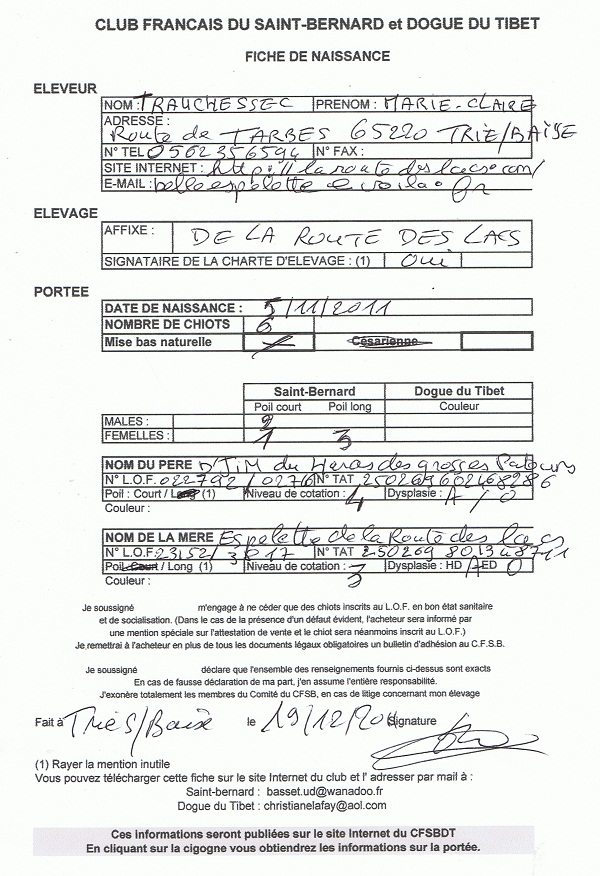 CLUB FRANCAIS DU SAINT-BERNARD et DOGUE DU TIBET
FICHE DE NAISSANCE
ELEVEUR
NOM : TRAUCHESSEC PRENOM : MARIE-CLAIRE
ADRESSE :
Route de TARBES 65220 TRIE/BAISE
N° TEL 0562356594 N° FAX :
SITE INTERNET : http://laroutedeslacs.com/
E-MAIL : belleespelette@voila.fr
ELEVAGE
AFFIXE : DE LA ROUTE DES LACS
SIGNATAIRE DE LA CHARTE D'ELEVAGE : (1) OUI
PORTEE
DATE DE NAISSANCE : 5/11/2011
NOMBRE DE CHIOTS 6
Mise bas naturelle Césarienne
Saint-Bernard Dogue du Tibet
Poil court Poil long Couleur
MALES : 2
FEMELLES : 1 3
NOM DU PERE D'JIM du Haras des grosses Patours
N° L.O.F. 022792/0276 N° TAT 250269602468286
Poil : Court / Long (1) Niveau de cotation : 4 Dysplasie : A/0
Couleur :
NOM DE LA MERE Espelette de la Route des Lacs
N° L.O.F. 23152/3017 N° TAT 250269801348711
Poil Court / Long (1) Niveau de cotation : 3 Dysplasie : HD A ED 0
Couleur :
Je soussigné m'engage à ne céder que des chiots inscrits au L.O.F. en bon état sanitaire
et de socialisation. (Dans le cas de la présence d'un défaut évident, l'acheteur sera informé par
une mention spéciale sur l'attestation de vente et le chiot sera néanmoins inscrit au L.O.F.)
Je remettrai à l'acheteur en plus de tous les documents légaux obligatoires un bulletin d'adhésion au C.F.S.B.
Je soussigné déclare que l'ensemble des renseignements fournis ci-dessus sont exacts
En cas de fausse déclaration de ma part, j'en assume l'entière responsabilité.
J'exonère totalement les membres du Comité du CFSB, en cas de litige concernant mon élevage
Fait à Trie S/Baise le 19/12/2011 Signature
(1) Rayer la mention inutile
Vous pouvez télécharger cette fiche sur le site Internet du club et l' adresser par mail à :
Saint-bernard : basset.ud@wanadoo.fr
Dogue du Tibet : christianelafay@aol.com
Ces informations seront publiées sur le site Internet du CFSBDT
En cliquant sur la cigogne vous obtiendrez les informations sur la portée.